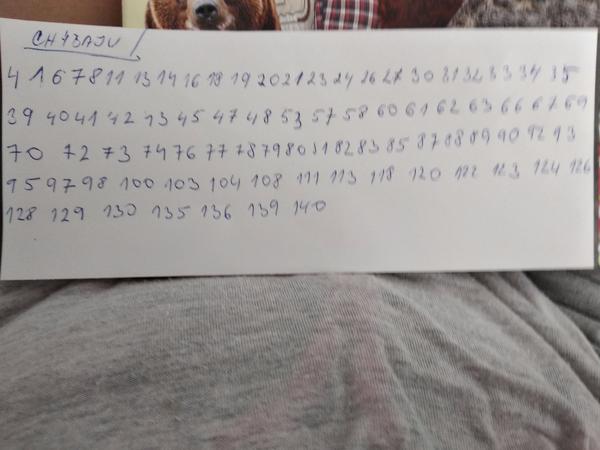 CHÝBAJU
4 1 6 7 8 11 13 14 16 18 19 20 21 23 24 26 27 30 31 32 33 34 35
39 40 41 42 43 45 47 48 53 57 58 60 61 62 63 66 67 69
70 72 73 74 76 77 78 79 80 81 82 83 85 87 88 89 90 92 93
95 97 98 100 103 104 108 111 113 118 120 122 123 124 126
128 129 130 135 136 139 140